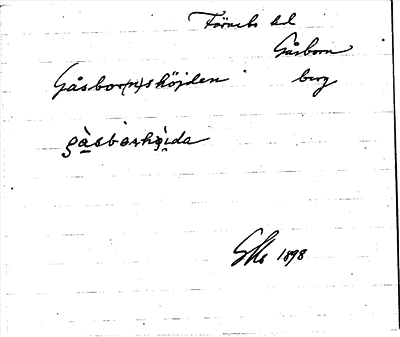 Färnebo hd
Gåsborn
Gåsbor(n)shöjden berg
gàsbòrshöi̯da
1898